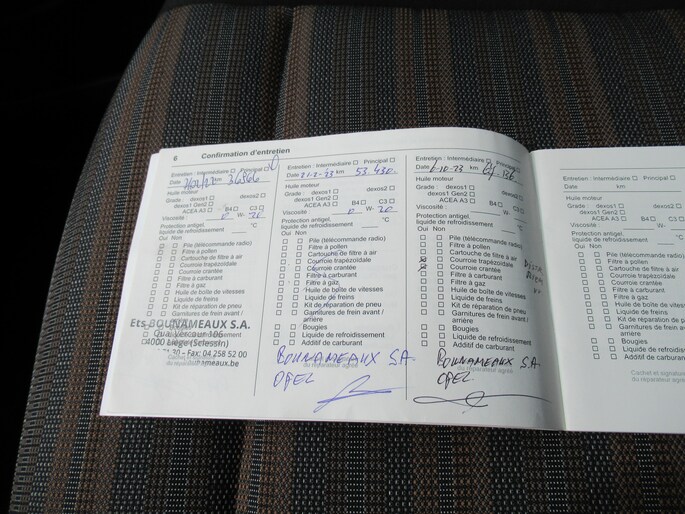 6 Confirmation d'entretien
Entretien : Intermédiaire Principal
Date km 36860
Huile moteur
Grade : dexos1 dexos2
dexos1 Gen2
ACEA A3 B4 C3
Viscosité : 0 W- 20
Protection antigel, °C
liquide de refroidissement
Oui Non
Pile (télécommande radio)
Filtre à pollen
Cartouche de filtre à air
Courroie trapézoïdale
Courroie crantée
Filtre à carburant
Filtre à gaz
Huile de boîte de vitesses
Liquide de freins
Kit de réparation de pneu
Garnitures de frein avant /
arrière
Ets BOUNAMEAUX S.A.
Quai Vercour 106
04000 Liège (Sclessin)
30 - Fax: 04 258 52 00
du répara ameaux.be
Entretien : Intermédiaire Principal
Date 21-2-23 km 53.430.
Huile moteur
Grade : dexos1 dexos2
dexos1 Gen2
ACEA A3 B4 C3
Viscosité : 0 W- 20
Protection antigel, °C
liquide de refroidissement
Oui Non
Pile (télécommande radio)
Filtre à pollen
Cartouche de filtre à air
Courroie trapézoïdale
Courroie crantée
Filtre à carburant
Filtre à gaz
Huile de boîte de vitesses
Liquide de freins
Kit de réparation de pneu
Garnitures de frein avant /
arrière
Bougies
Liquide de refroidissement
Additif de carburant
BOUNAMEAUX S.A.
du réparateur agréé
OPEL
Entretien : Intermédiaire Principal
Date 6-10-23 km
Huile moteur
Grade : dexos1 dexos2
dexos1 Gen2
ACEA A3 B4 C3
Viscosité : 0 W- 20
Protection antigel, °C
liquide de refroidissement
Oui Non
Pile (télécommande radio)
Filtre à pollen
Cartouche de filtre à air
Courroie trapézoïdale
Courroie crantée
Filtre à carburant
Filtre à gaz
Huile de boîte de vitesses
Liquide de freins
Kit de réparation de pneu
Garnitures de frein avant /
arrière
Bougies
Liquide de refroidissement
Additif de carburant
BOUNAMEAUX S.A.
du réparateur agréé
OPEL
Entretien : Intermédiaire Principal
Date km
Huile moteur
Grade : dexos1
dexos1 Gen2
ACEA A3 B4 C3
Viscosité : W-
Protection antigel,
liquide de refroidissement
Oui Non
Pile (télécommande radio)
Filtre à pollen
Cartouche de filtre à air
Courroie trapézoïdale
Courroie crantée
Filtre à carburant
Filtre à gaz
Huile de boîte de vitesses
Liquide de freins
Kit de réparation de pneu
Garnitures de frein avant /
arrière
Bougies
Liquide de refroidissement
Additif de carburant
Cachet et signature
du réparateur